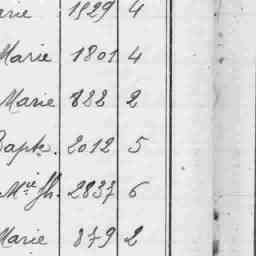 arie 1529 4
Marie 1801 4
Marie 822 2
Bapte. 2012 5
Mie Jh. 2837 6
Marie 879 2